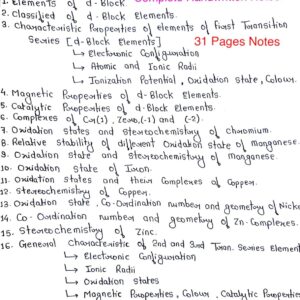 1. Elements of d-Block
2. Classified of d-Block Elements.
3. Characteristic Properties of elements of First Transition
Series [d-Block Elements] 31 Pages Notes
↳ Electronic Configuration
↳ Atomic and Ionic Radii
↳ Ionization Potential, Oxidation state, Colour.
4. Magnetic Properties of d-Block Elements.
5. Catalytic Properties of d-Block elements.
6. Complexes of Cr(1), Zero, (-1) and (-2).
7. Oxidation states and Stereochemistry of chromium.
8. Relative stability of different Oxidation state of manganese.
9. Oxidation state and stereochemistry of manganese.
10. Oxidation state of Iron.
11. Oxidation states and their Complexes of Copper.
12. Stereochemistry of Copper.
13. Oxidation state, Co-Ordination number and geometry of Nicke
14. Co-Ordination number and geometry of Zn-Complexes.
15. Stereochemistry of Zinc.
16. General Characteristic of 2nd and 3rd Tran. Series Element
↳ Electronic Configuration
↳ Ionic Radii
↳ Oxidation States
↳ Magnetic Properties, Colour, Catalytic Properties